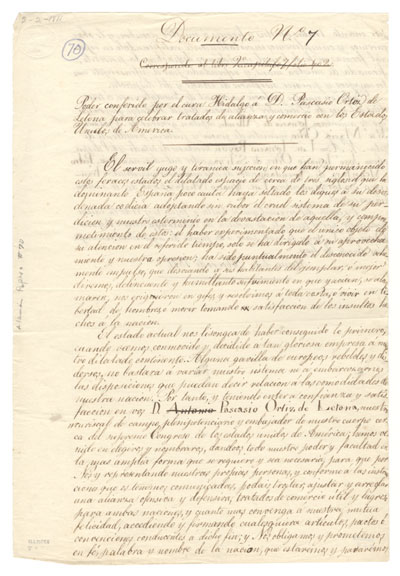 Documento Nº 7
70
Poder conferido por el cura Hidalgo á D. Pascasio Ortiz de
Letona para celebrar tratados de alianza y comercio con los Estados
Unidos de America.
El servil yugo y tiranica sujecion en que han permanecido
estos feraces estados, el dilatado espacio de cerca de tres siglos; el que la
dominante España poco cauta haya soltado los diques á su desor-
denada codicia adoptando sin rubor el cruel sistema de su per-
dicion y nuestro esterminio en la devastacion de aquella, y compro-
metimiento de esta: el haber experimentado que el unico objeto de
su atencion en el referido tiempo, solo se ha dirigido á su aprovecha-
miento y nuestra opresion, ha sido puntualmente el desconocido vehe-
mente impulso, que desviando á sus habitantes del ejemplar, ó mejor
diremos, delincuente y humillante sufrimiento en que yacian, se alar-
maron, nos erigieron en gefes, y resolvimos á toda costa ó vivir en li-
bertad de hombres, ó morir tomando satisfaccion de los insultos he-
chos á la nacion.
El estado actual nos lisongea de haber conseguido lo primero,
cuando vemos conmovido y decidido á tan gloriosa empresa á nues-
tro dilatado continente. Alguna gavilla de europeos rebeldes y dis-
persos, no bastará á variar nuestro sistema ni á embarazarnos
las disposiciones que puedan decir relacion á las comodidades de
nuestra nacion. Por tanto, y teniendo entera confianza y satis-
faccion en vos D. Antonio Pascasio Ortiz de Letona, nuestro
mariscal de campo, plenipotenciario y embajador de nuestro cuerpo cer-
ca del supremo Congreso de los estados unidos de America; hemos ve-
nido en elegiros y nombraros, dandoos todo nuestro poder y facultad en
la mas amplia forma que se requiere y sea necesaria, para que por
Nos y representando nuestras propias personas, y conforme á las instruc-
ciones que os tenemos comunicadas, podais tratar, ajustar y arreglar
una alianza ofensiva y defensiva, tratados de comercio util y lucroso
para ambas naciones, y cuanto mas convenga á nuestra mutua
felicidad, accediendo y firmando cualesquiera articulos, pactos ó
convenciones conducentes á dicho fin; y Nos obligamos y prometemos
en fé, palabra y nombre de la nacion, que estaremos y pasaremos